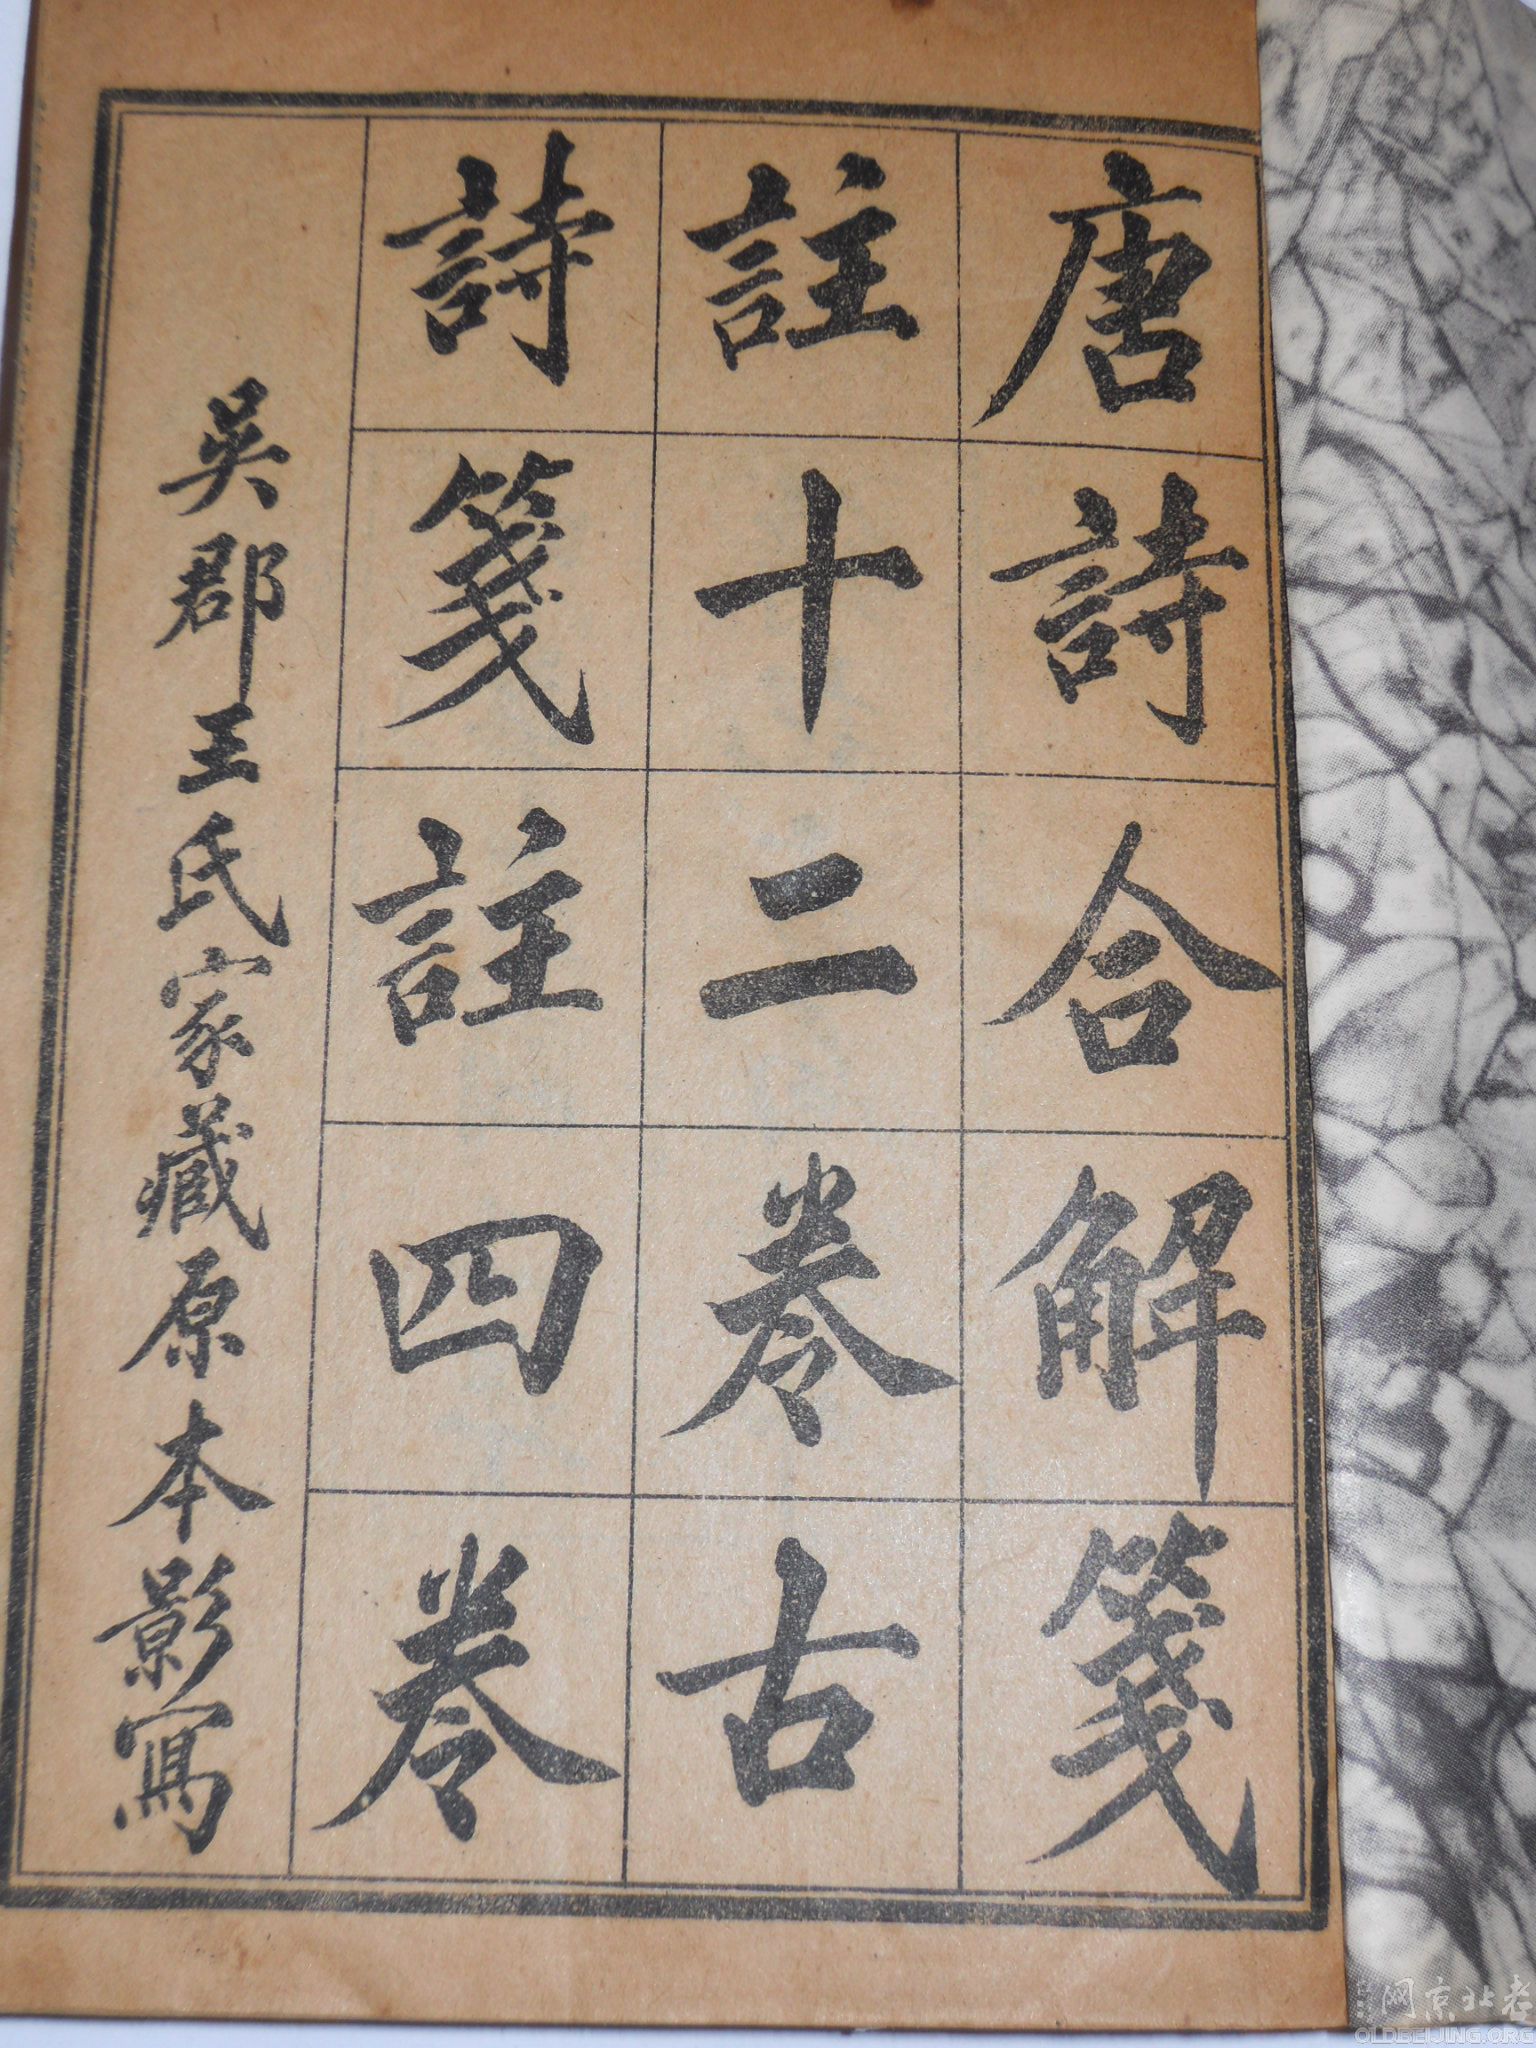 唐詩合解箋
註十二卷古
詩箋註四卷
吳郡王氏家藏原本影寫
老北京网
OLDBEIJING.ORG